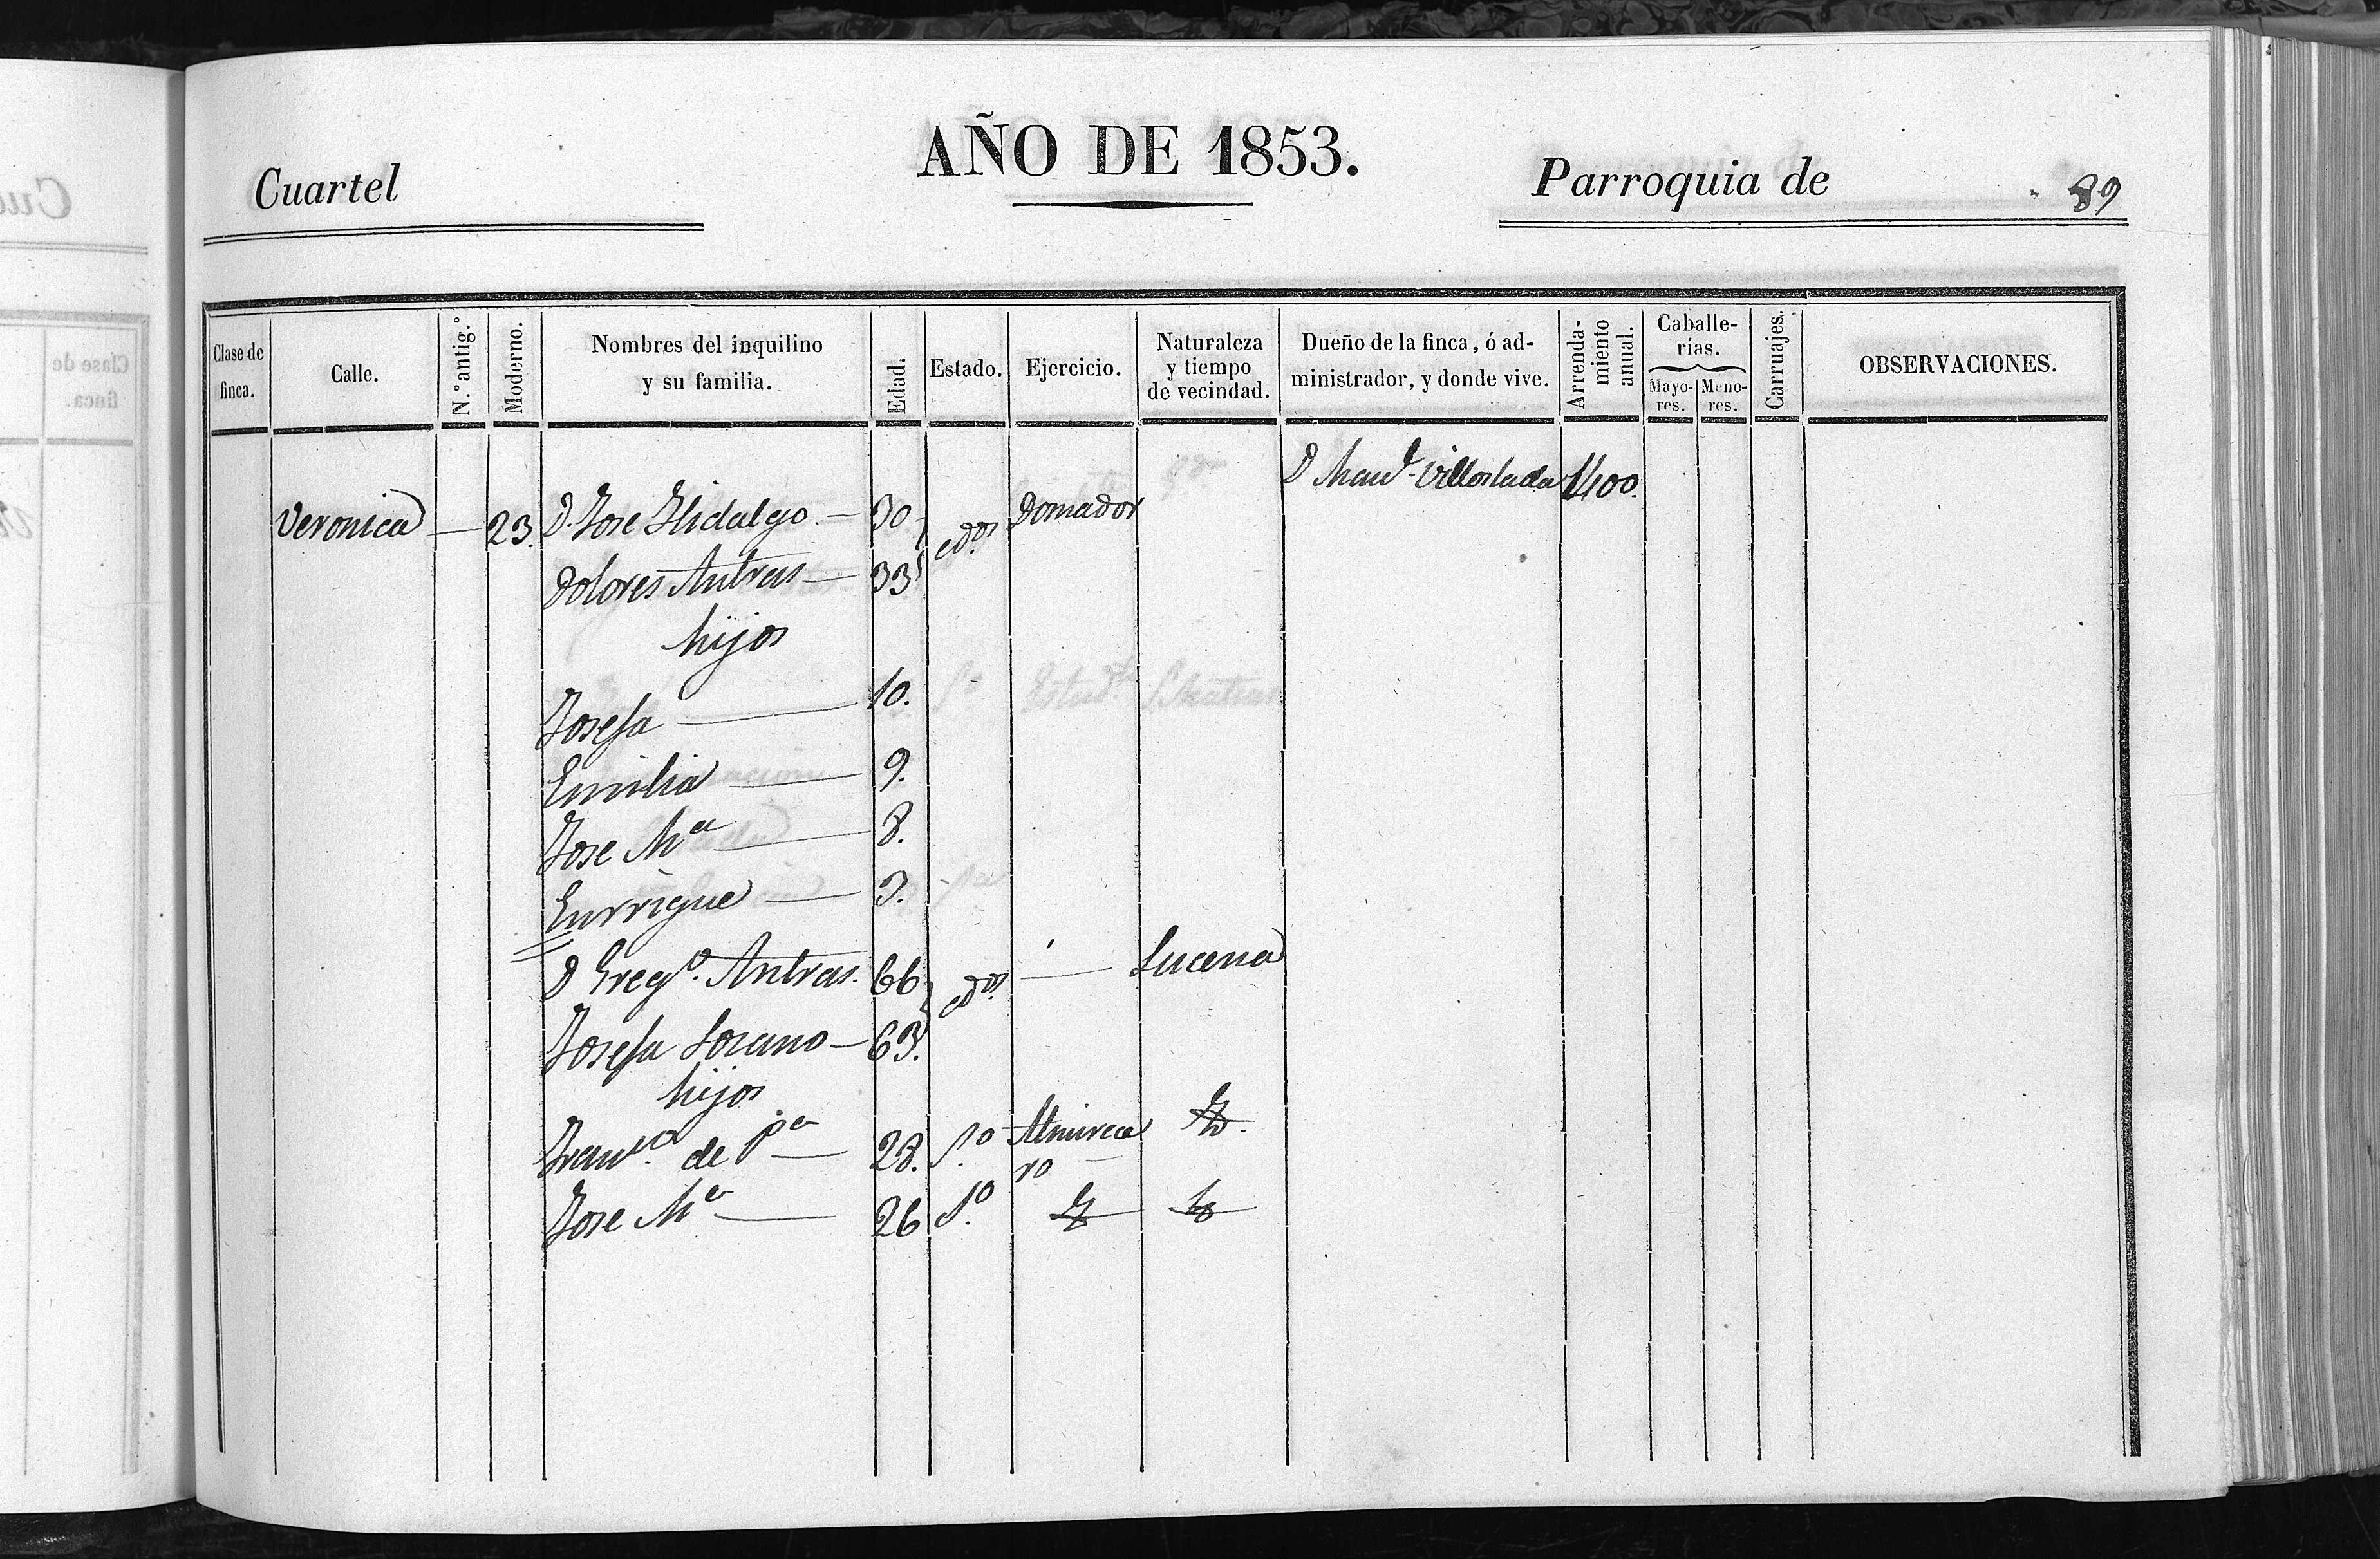 AÑO DE 1853.
Cuartel
Parroquia de
89
Clase de finca.
Calle.
N.º antig.º
Moderno.
Nombres del inquilino y su familia.
Edad.
Estado.
Ejercicio.
Naturaleza y tiempo de vecindad.
Dueño de la finca, ó administrador, y donde vive.
Arrendamiento anual.
Caballerías.
Mayores.
Menores.
Carruajes.
OBSERVACIONES.
D Man.l Villoslada 1400.
Veronica — 23. D. Jose Hidalgo — 30 cdos Domador
Dolores Antras — 33
hijos
Josefa — 10.
Emilia — 9.
Jose Mª — 8.
Enrrique — 3.
D Gregº. Antras. 66 cdos — Lucena
Josefa Lozano — 63.
hijos
Franco. de Pª — 28. Sº Almirecero
Jose Mª — 26 Sº